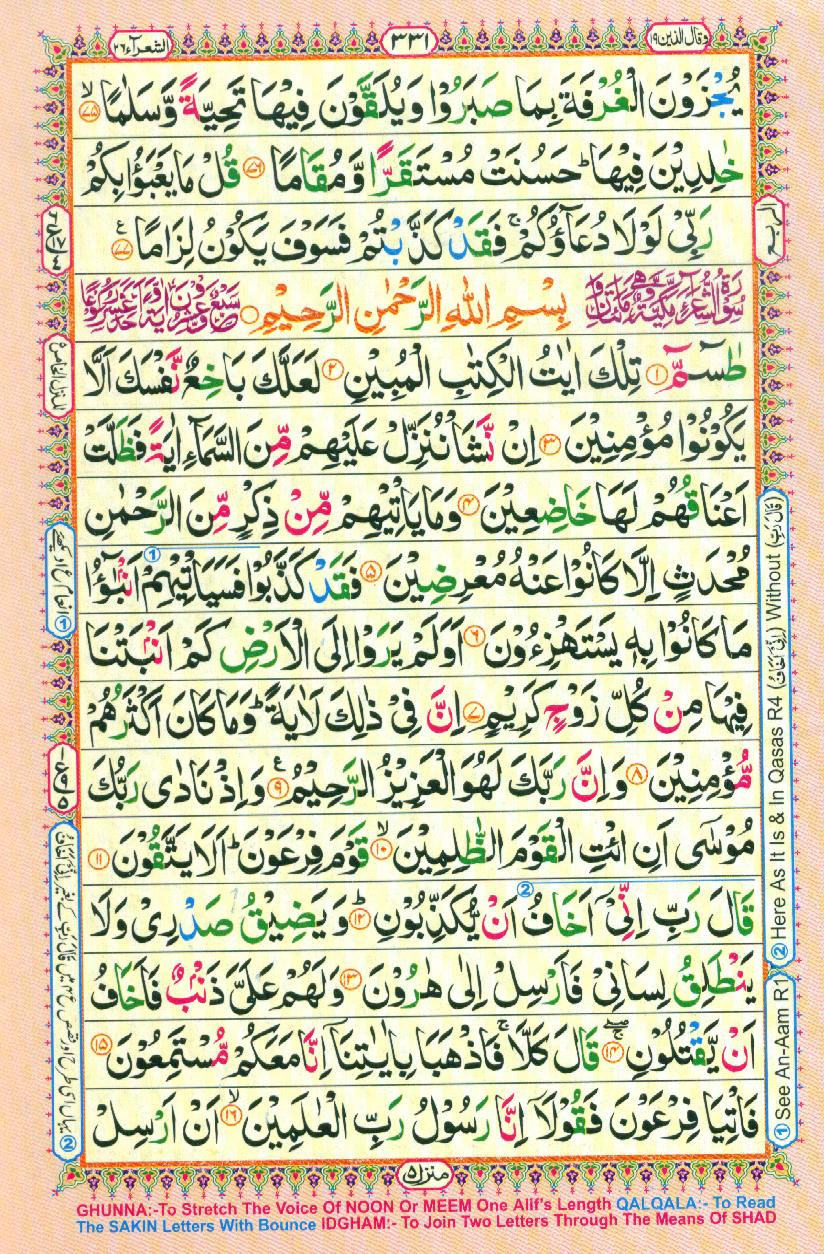 الشعرآء ٢٦
٣٣١
وقال الذين ١٩
يُجْزَوْنَ الْغُرْفَةَ بِمَا صَبَرُوْا وَيُلَقَّوْنَ فِيْهَا تَحِيَّةً وَّسَلٰمًا ﴿٧٥﴾
خٰلِدِيْنَ فِيْهَا ؕ حَسُنَتْ مُسْتَقَرًّا وَّمُقَامًا ﴿٧٦﴾ قُلْ مَا يَعْبَؤُا بِكُمْ
رَبِّيْ لَوْلَا دُعَآؤُكُمْ ۚ فَقَدْ كَذَّبْتُمْ فَسَوْفَ يَكُوْنُ لِزَامًا ﴿٧٧﴾
بِسْمِ اللهِ الرَّحْمٰنِ الرَّحِيْمِ
طٰسٓمّٓ ﴿١﴾ تِلْكَ اٰيٰتُ الْكِتٰبِ الْمُبِيْنِ ﴿٢﴾ لَعَلَّكَ بَاخِعٌ نَّفْسَكَ اَلَّا
يَكُوْنُوْا مُؤْمِنِيْنَ ﴿٣﴾ اِنْ نَّشَاْ نُنَزِّلْ عَلَيْهِمْ مِّنَ السَّمَآءِ اٰيَةً فَظَلَّتْ
اَعْنَاقُهُمْ لَهَا خَاضِعِيْنَ ﴿٤﴾ وَمَا يَاْتِيْهِمْ مِّنْ ذِكْرٍ مِّنَ الرَّحْمٰنِ
مُحْدَثٍ اِلَّا كَانُوْا عَنْهُ مُعْرِضِيْنَ ﴿٥﴾ فَقَدْ كَذَّبُوْا فَسَيَاْتِيْهِمْ اَنْۢبٰٓؤُا
مَا كَانُوْا بِهٖ يَسْتَهْزِءُوْنَ ﴿٦﴾ اَوَلَمْ يَرَوْا اِلَى الْاَرْضِ كَمْ اَنْۢبَتْنَا
فِيْهَا مِنْ كُلِّ زَوْجٍ كَرِيْمٍ ﴿٧﴾ اِنَّ فِيْ ذٰلِكَ لَاٰيَةً ؕ وَمَا كَانَ اَكْثَرُهُمْ
مُّؤْمِنِيْنَ ﴿٨﴾ وَاِنَّ رَبَّكَ لَهُوَ الْعَزِيْزُ الرَّحِيْمُ ﴿٩﴾ وَاِذْ نَادٰى رَبُّكَ
مُوْسٰٓى اَنِ ائْتِ الْقَوْمَ الظّٰلِمِيْنَ ﴿١٠﴾ قَوْمَ فِرْعَوْنَ ؕ اَلَا يَتَّقُوْنَ ﴿١١﴾
قَالَ رَبِّ اِنِّيْٓ اَخَافُ اَنْ يُّكَذِّبُوْنِ ﴿١٢﴾ وَيَضِيْقُ صَدْرِيْ وَلَا
يَنْطَلِقُ لِسَانِيْ فَاَرْسِلْ اِلٰى هٰرُوْنَ ﴿١٣﴾ وَلَهُمْ عَلَيَّ ذَنْۢبٌ فَاَخَافُ
اَنْ يَّقْتُلُوْنِ ﴿١٤﴾ قَالَ كَلَّا ۚ فَاذْهَبَا بِاٰيٰتِنَآ اِنَّا مَعَكُمْ مُّسْتَمِعُوْنَ ﴿١٥﴾
فَاْتِيَا فِرْعَوْنَ فَقُوْلَآ اِنَّا رَسُوْلُ رَبِّ الْعٰلَمِيْنَ ﴿١٦﴾ اَنْ اَرْسِلْ
منزل ٥
الربع
② Here As It Is & In Qasas R4 (اِنِّيْٓ اَخَافُ) Without (قَالَ رَبِّ)
① See An-Aam R1
GHUNNA:-To Stretch The Voice Of NOON Or MEEM One Alif's Length QALQALA:- To Read
The SAKIN Letters With Bounce IDGHAM:- To Join Two Letters Through The Means Of SHAD